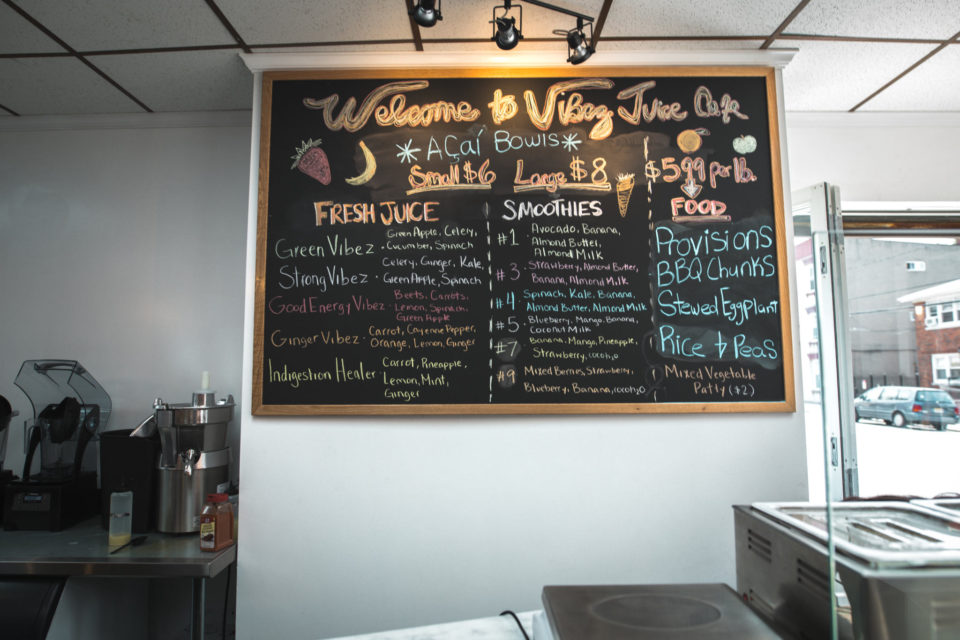 Welcome to Vibez Juice Cafe
*Açaí Bowls*
Small $6 Large $8
$5.99 per lb.
FRESH JUICE
Green Vibez · Green Apple, Celery,
Cucumber, Spinach
Strong Vibez · Celery, Ginger, Kale,
Green Apple, Spinach
Good Energy Vibez · Beets, Carrots,
Lemon, Spinach,
Green Apple
Ginger Vibez · Carrot, Cayenne Pepper,
Orange, Lemon, Ginger
Indigestion Healer · Carrot, Pineapple,
Lemon, Mint,
Ginger
SMOOTHIES
#1 Avocado, Banana,
Almond Butter,
Almond Milk
#3 · Strawberry, Almond Butter,
Banana, Almond Milk
#4 · Spinach, Kale, Banana,
Almond Butter, Almond Milk
#5 · Blueberry, Mango, Banana,
Coconut Milk
#7 · Banana, Mango, Pineapple,
Strawberry,
#9 Mixed Berries, Strawberry,
Blueberry, Banana,
FOOD
Provisions
BBQ Chunks
Stewed Eggplant
Rice & Peas
Mixed Vegetable
Patty ($2)